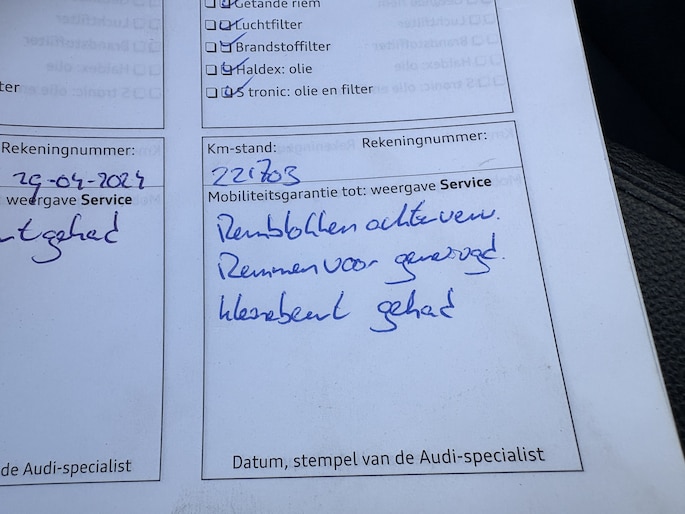 Getande riem
Luchtfilter
Brandstoffilter
Haldex: olie
S tronic: olie en filter
ter
Rekeningnummer:
29-04-2024
weergave Service
nt gehad
de Audi-specialist
Km-stand: Rekeningnummer:
221703
Mobiliteitsgarantie tot: weergave Service
Remblokken achter verv.
Remmen voor gereinigd.
kleine beurt gehad
Datum, stempel van de Audi-specialist